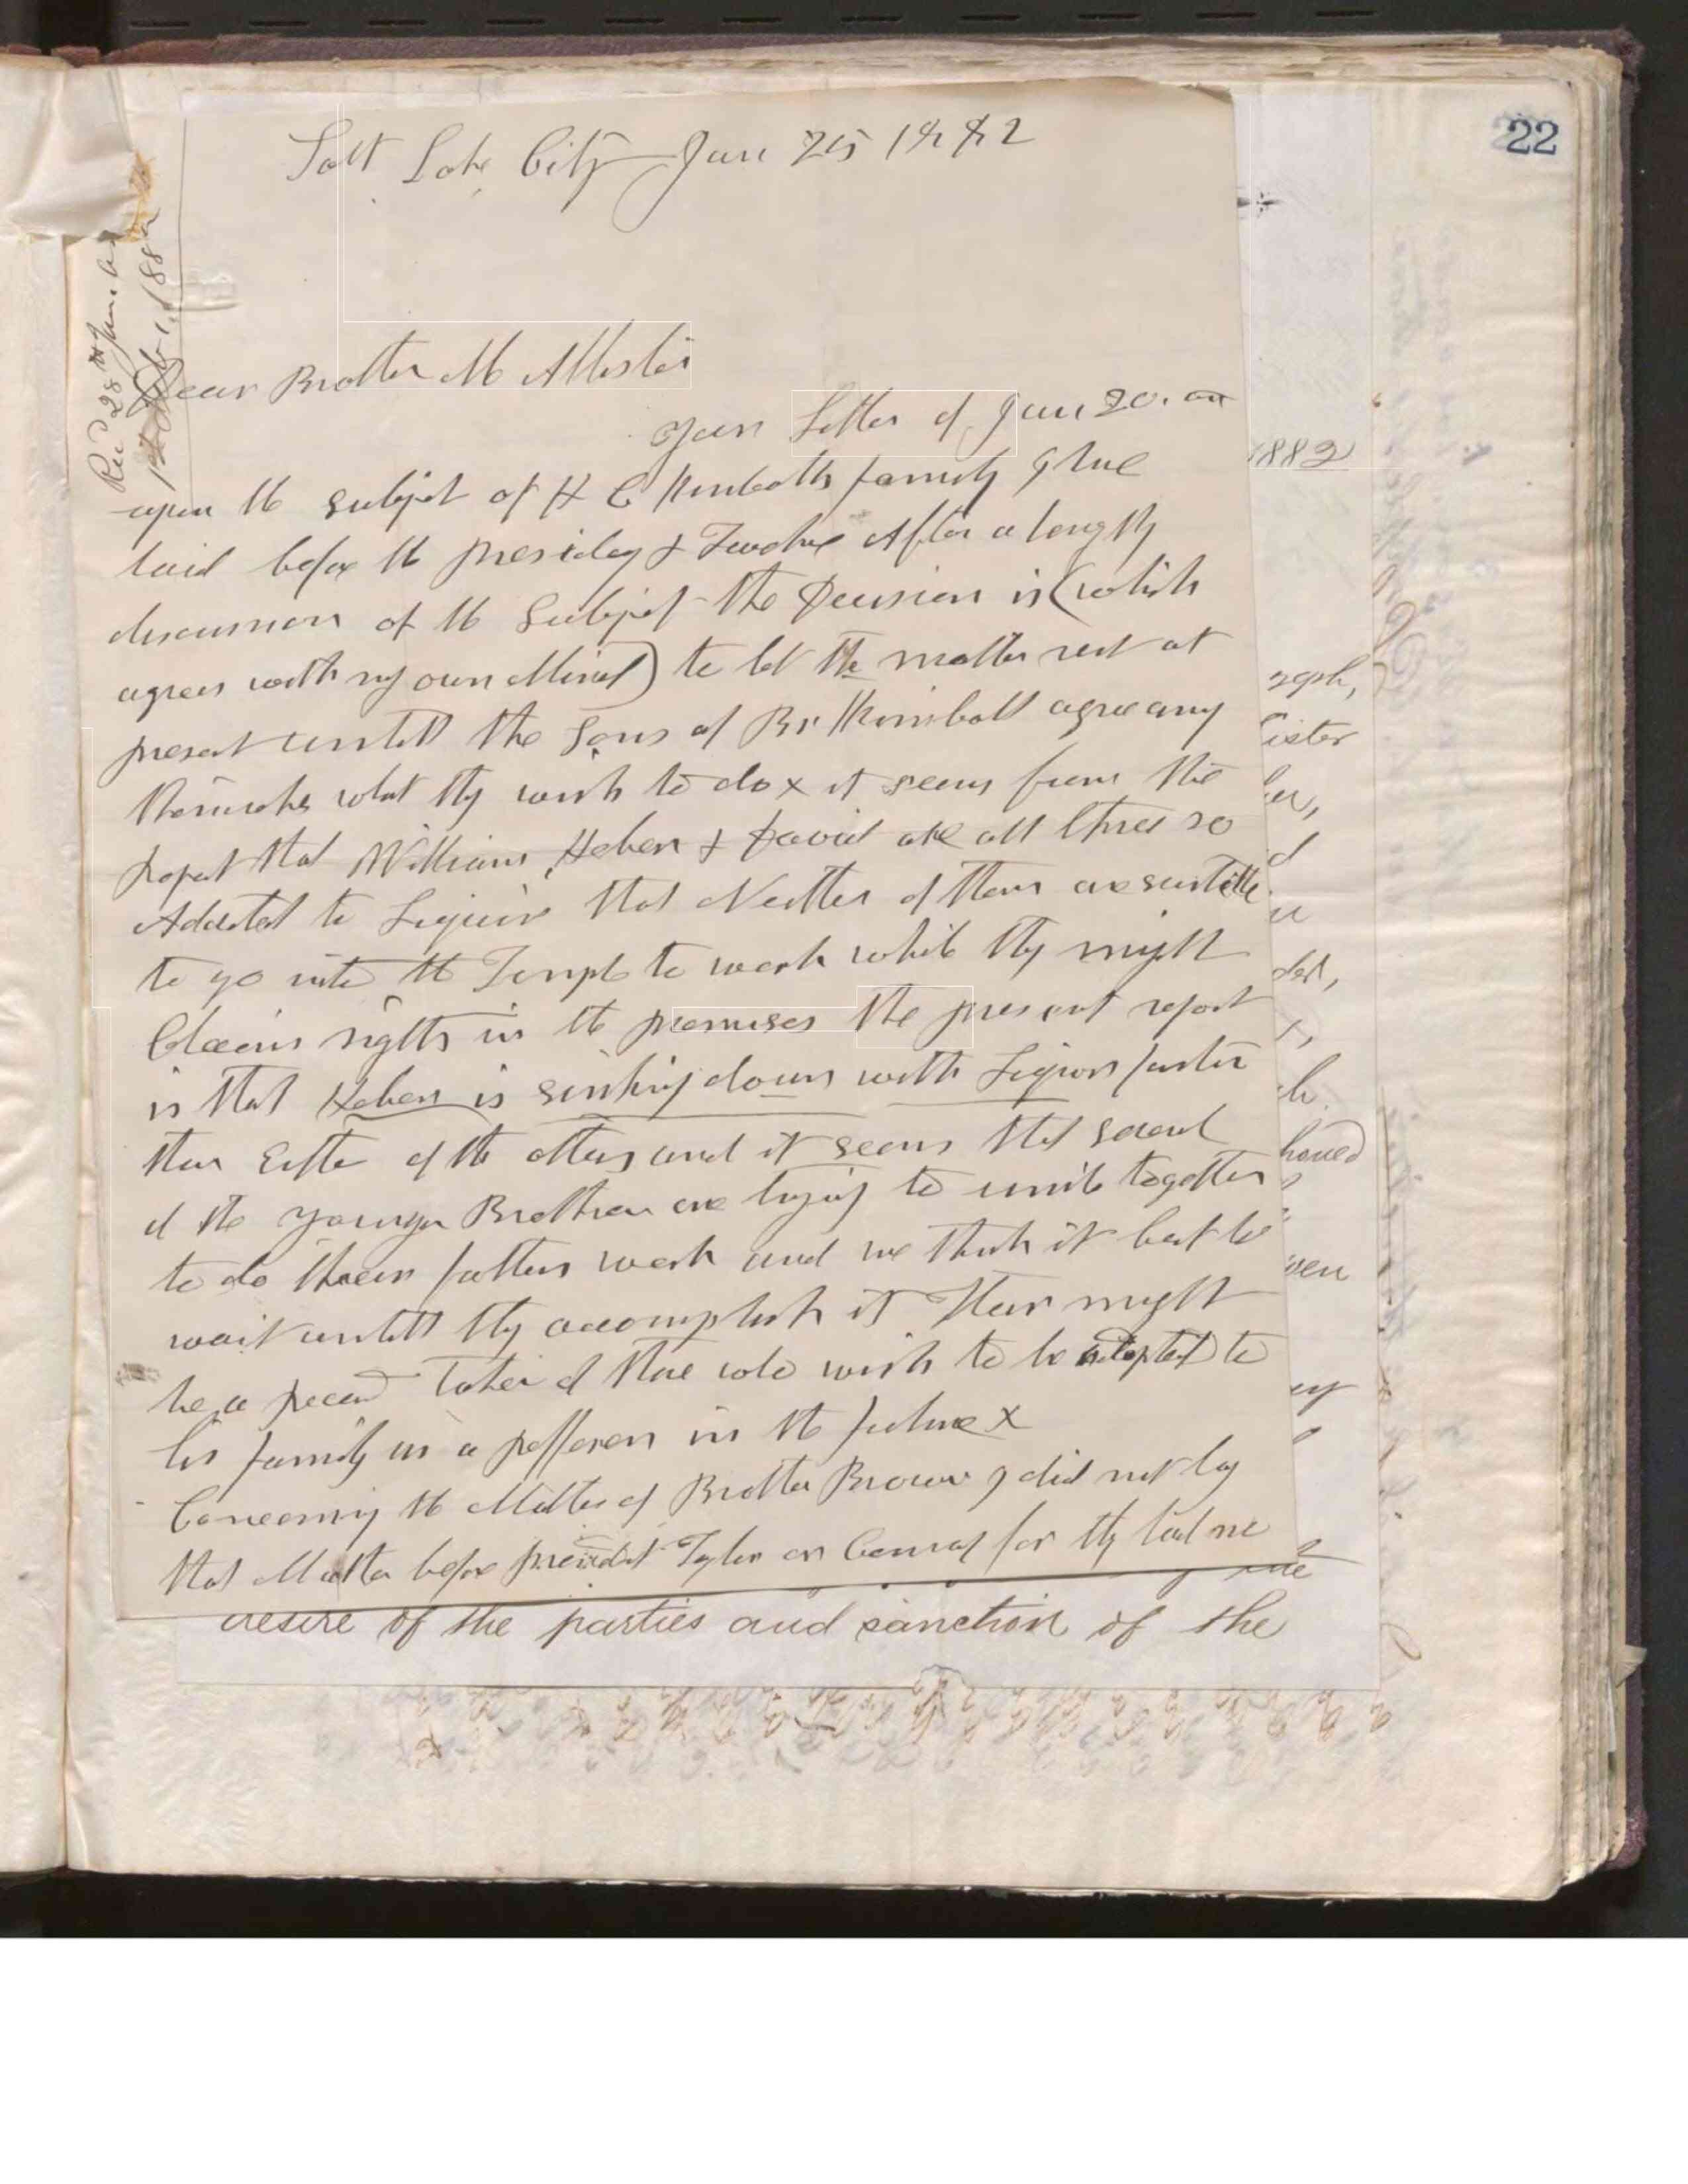 22
Salt Lake City Jan 25 1882
Recd 28th Jan.
1882
Dear Brother Mc Allister
Your Letter of Jan 20. on
upon the subject of H C Kimballs family I have
laid before the presidey & Twelve After a lengthy
discussion of the Subject the Decision is (which
agrees with my own Mind) to let the matter rest at
present untill the Sons of Br Kimball agree among
themselves what they wish to do x it seems from the
Report that William, Heber & David are all three so
Addicted to Liquor that Neither of them are suitable
to go into the Temple to work while they might
Claim rights in the premises the present report
is that Heber is sinking down with Liquor faster
than Either of the others and it seems that several
of the younger Brethren are trying to unite together
to do their fathers work and we think it best to
wait untill they accomplish it There might
be a Record Taken of those who wish to be adopted to
his family in the future x
Concerning the Matter of Brother Brown I did not lay
that Matter before president Taylor or Council for they told me
1882
oseph,
lister
honed
desire of the parties and sanction of the